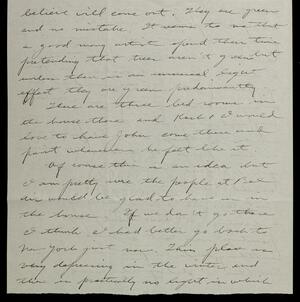 believe will come out. They are green
and no mistake. It seems to me that
a good many artist spend their time
pretending that trees aren't green but
unless there is an unusual light
effect they are green predominantly
There are three bed rooms in
the house there and Karl & I would
love to have John come there and
paint whenever he felt like it
Of course this is an idea but
I am pretty sure the people at
would be glad to have us in
the house If we don't go there
I think I had better go back to
New York just now. This place is
very depressing in the winter and
there is practically no light in which